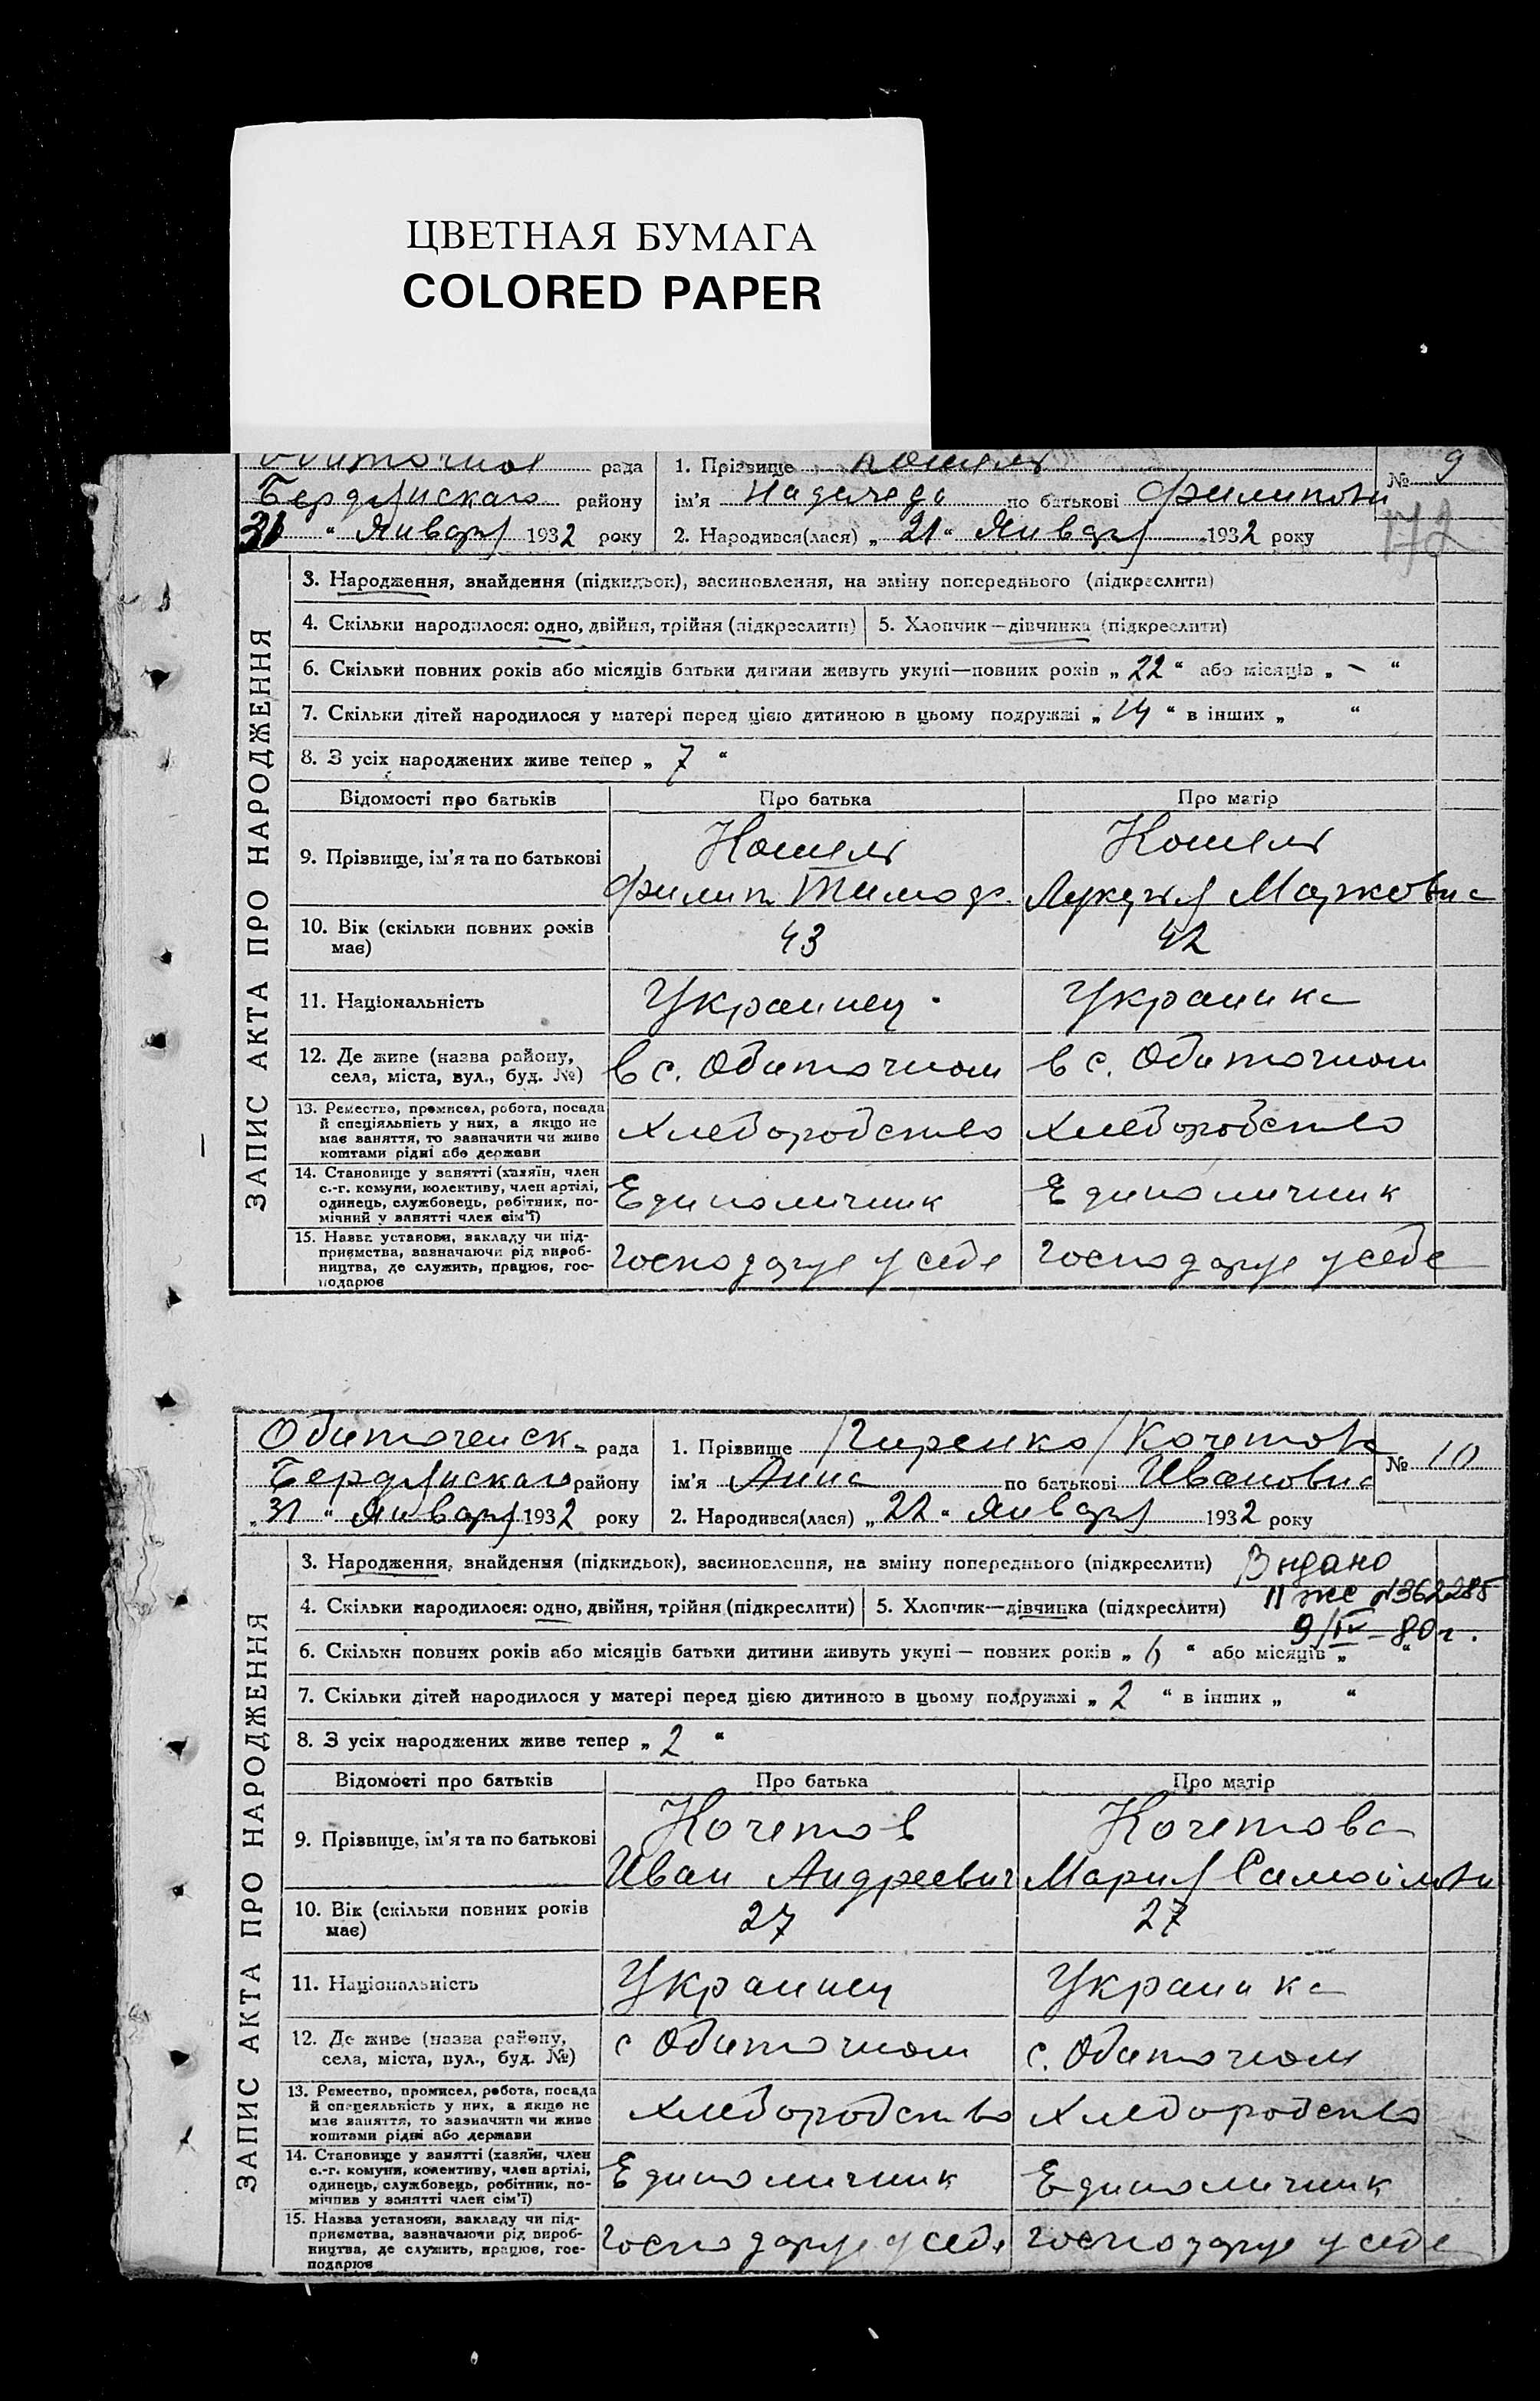 ЦВЕТНАЯ БУМАГА
COLORED PAPER
рада 1. Прізвище Кошель № 9
Бердянскаго району ім'я Надежда по батькові Филипови
31 “ Январ 1932 року 2. Народився(лася) „ 21 “ Январ 1932 року
172
ЗАПИС АКТА ПРО НАРОДЖЕННЯ
3. Народження, знайдення (підкидьок), засиновлення, на зміну попереднього (підкреслити)
4. Скільки народилося: одно, двійня, трійня (підкреслити) 5. Хлопчик—дівчинка (підкреслити)
6. Скільки повних років або місяців батьки дитини живуть укупі—повних років „ 22 “ або місяців „ – “
7. Скільки дітей народилося у матері перед цією дитиною в цьому подружжі „ 14 “ в інших „ “
8. З усіх народжених живе тепер „ 7 “
Відомості про батьків Про батька Про матір
9. Прізвище, ім'я та по батькові Кошель Кошель
Филип Тимоф. Маркови
10. Вік (скільки повних років має) 43 42
11. Національність Украинец Украинка
12. Де живе (назва району, села, міста, вул., буд. №) в с. Обиточном в с. Обиточном
13. Ремество, промисел, робота, посада
й спеціяльність у них, а якщо не
має заняття, то зазначити чи живе
коштами рідні або держави Хлеборобство Хлеборобство
14. Становище у занятті (хазяїн, член
с.-г. комуни, колективу, член артілі,
одинець, службовець, робітник, по-
мічний у занятті член сім'ї) Единоличник Единоличник
15. Назва установи, закладу чи під-
приємства, зазначаючи рід вироб-
ництва, де служить, працює, гос-
подарює господарує у себе господарує у себе
Обиточенск. рада 1. Прізвище Гиренко /Кочетова № 10
Бердянскаго району ім'я Анна по батькові Ивановна
„ 31 “ Январ 1932 року 2. Народився(лася) „ 22 “ Январ 1932 року
ЗАПИС АКТА ПРО НАРОДЖЕННЯ
3. Народження, знайдення (підкидьок), засиновлення, на зміну попереднього (підкреслити) Видано
4. Скільки народилося: одно, двійня, трійня (підкреслити) 5. Хлопчик—дівчинка (підкреслити) II же №362285
9/IV–80г.
6. Скільки повних років або місяців батьки дитини живуть укупі — повних років „ 6 “ або місяців „ “
7. Скільки дітей народилося у матері перед цією дитиною в цьому подружжі „ 2 “ в інших „ “
8. З усіх народжених живе тепер „ 2 “
Відомості про батьків Про батька Про матір
9. Прізвище, ім'я та по батькові Кочетов Кочетова
Иван Андреевич Мария Самойлови
10. Вік (скільки повних років має) 27 27
11. Національність Украинец Украинка
12. Де живе (назва району, села, міста, вул., буд. №) с Обиточном с. Обиточном
13. Ремество, промисел, робота, посада
й спецеяльність у них, а якщо не
має заняття, то зазначити чи живе
коштами рідні або держави Хлеборобство Хлеборобство
14. Становище у занятті (хазяїн, член
с.-г. комуни, колективу, член артілі,
одинець, службовець, робітник, по-
мічнив у занятті член сім'ї) Единоличник Единоличник
15. Назва установи, закладу чи під-
приємства, зазначаючи рід вироб-
ництва, де служить, працює, гос-
подарює господарує у себе господарує у себе